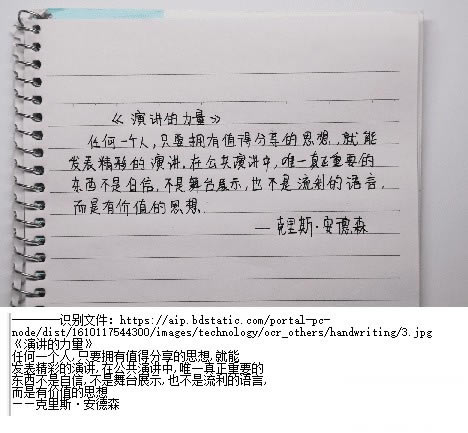 《演讲的力量》
任何一个人,只要拥有值得分享的思想,就能
发表精彩的演讲.在公共演讲中,唯一真正重要的
东西不是自信,不是舞台展示,也不是流利的语言,
而是有价值的思想.
——克里斯·安德森
————识别文件: https://aip.bdstatic.com/portal-pc-
node/dist/1610117544300/images/technology/ocr_others/handwriting/3.jpg
《演讲的力量》
任何一个人,只要拥有值得分享的思想,就能
发表精彩的演讲,在公共演讲中,唯一真正重要的
东西不是自信,不是舞台展示,也不是流利的语言,
而是有价值的思想
——克里斯·安德森